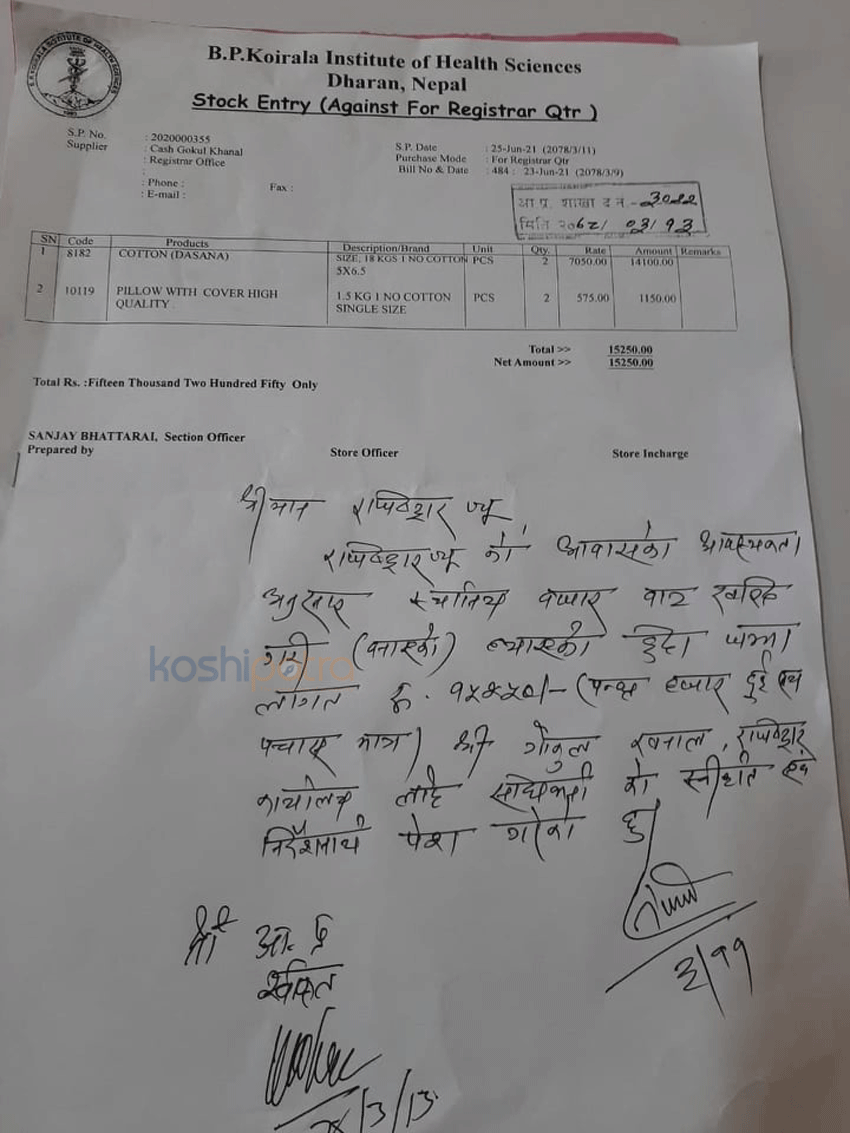 B.P.KOIRALA INSTITUTE OF HEALTH SCIENCES
B.P.Koirala Institute of Health Sciences
Dharan, Nepal
Stock Entry (Against For Registrar Qtr )
S.P. No. : 2020000355
Supplier : Cash Gokul Khanal
: Registrar Office
:
: Phone : Fax :
: E-mail :
S.P. Date : 25-Jun-21 (2078/3/11)
Purchase Mode : For Registrar Qtr
Bill No & Date : 484 : 23-Jun-21 (2078/3/9)
आ.प्र. शाखा द.नं.-३०८८
मिति २०७८/ ०३/ १३
SN Code Products Description/Brand Unit Qty. Rate Amount Remarks
1 8182 COTTON (DASANA) SIZE, 18 KGS 1 NO COTTON PCS 2 7050.00 14100.00
5X6.5
2 10119 PILLOW WITH COVER HIGH 1.5 KG 1 NO COTTON PCS 2 575.00 1150.00
QUALITY SINGLE SIZE
Total >> 15250.00
Net Amount >> 15250.00
Total Rs. :Fifteen Thousand Two Hundred Fifty Only
SANJAY BHATTARAI, Section Officer
Prepared by Store Officer Store Incharge
श्रीमान रजिष्ट्रार ज्यू,
रजिष्ट्रार ज्यू को आवासको आवश्यकता
अनुसार स्थानिय बजार बाट खरिद
गरी (बनाएको) ल्याएको हुँदा जम्मा
लागत रु. १५२५०/- (पन्ध्र हजार दुई सय
पचास मात्र) श्री गोकुल खनाल, रजिष्ट्रार
कार्यालय लाई सोधभर्ना को स्वीकृति एवं
निर्देशनार्थ पेश गरेको छु।
koshipatra
३/११
श्री आ. प्र
78/3/13